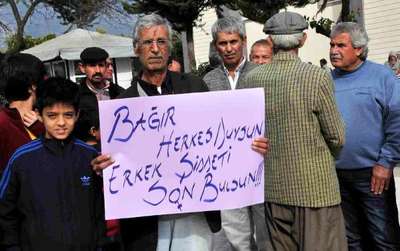 BAĞIR
HERKES DUYSUN
ERKEK ŞİDDETİ
SON BULSUN!!!